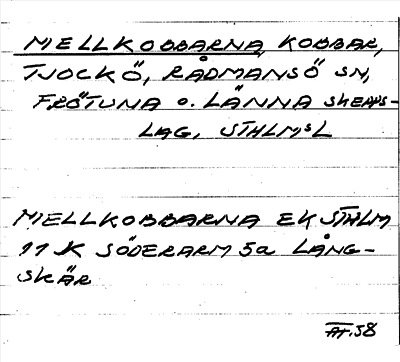 MELLKOBBARNA, KOBBAR,
TJOCKÖ, RÅDMANSÖ SN,
FRÖTUNA O. LÄNNA SKEPPS-
LAG, STHLMSL
MELLKOBBARNA EK STHLM
11 K SÖDERARM 5a LÅNG-
SKÄR
58